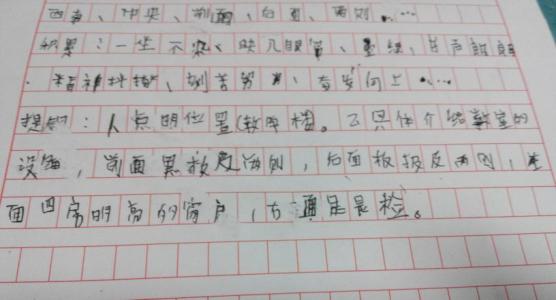 中央、前面、后面、两侧……
积累：一尘不染、映入眼帘、墨绿、书声朗朗
精神抖擞、刻苦努力、奋发向上……
提纲：人点明位置(教学楼。2具体介绍教室的
设施，前面黑板及两侧，后面板报及两侧，
面四扇明高的窗户，右